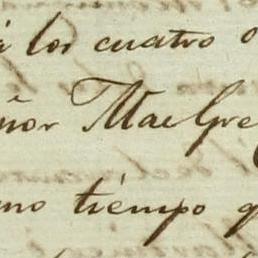 á los cuatro
ñor MacGre
mo tiempo